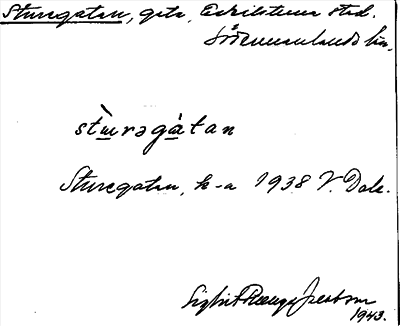 Sturegatan, gata, Eskilstuna stad.
Södermanlands län.
stɯ̀rəgàtan
Sturegatan, k-a 1938 V. Dal.
Sigfrid Range Jacobson
1943.